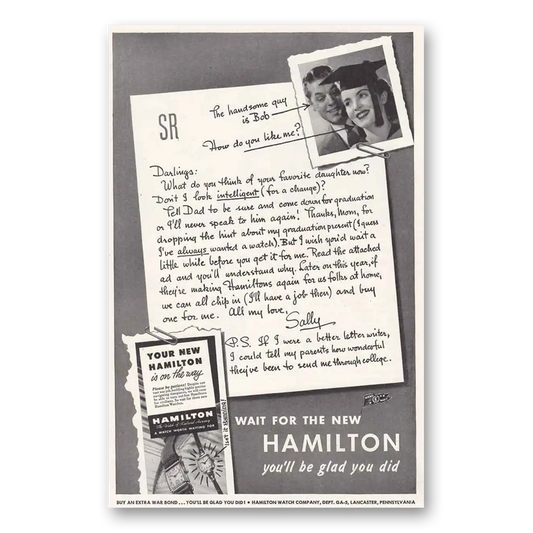 SR
The handsome guy
is Bob
How do you like me?
Darlings:
What do you think of your favorite daughter now?
Don't I look intelligent (for a change)?
Tell Dad to be sure and come down for graduation
or I'll never speak to him again! Thanks, Mom, for
dropping the hint about my graduation present (I guess
I've always wanted a watch). But I wish you'd wait a
little while before you get it for me. Read the attached
ad and you'll understand why. Later on this year, if
they're making Hamiltons again for us folks at home,
we can all chip in (I'll have a job then) and buy
one for me. All my love,
Sally
P.S. If I were a better letter writer,
I could tell my parents how wonderful
they've been to send me through college.
YOUR NEW
HAMILTON
is on the way
Please be patient!
HAMILTON
The Watch of Railroad Accuracy
A WATCH WORTH WAITING FOR
WAIT FOR THE NEW
HAMILTON
you'll be glad you did
BUY AN EXTRA WAR BOND . . . YOU'LL BE GLAD YOU DID! • HAMILTON WATCH COMPANY, DEPT. GA-5, LANCASTER, PENNSYLVANIA